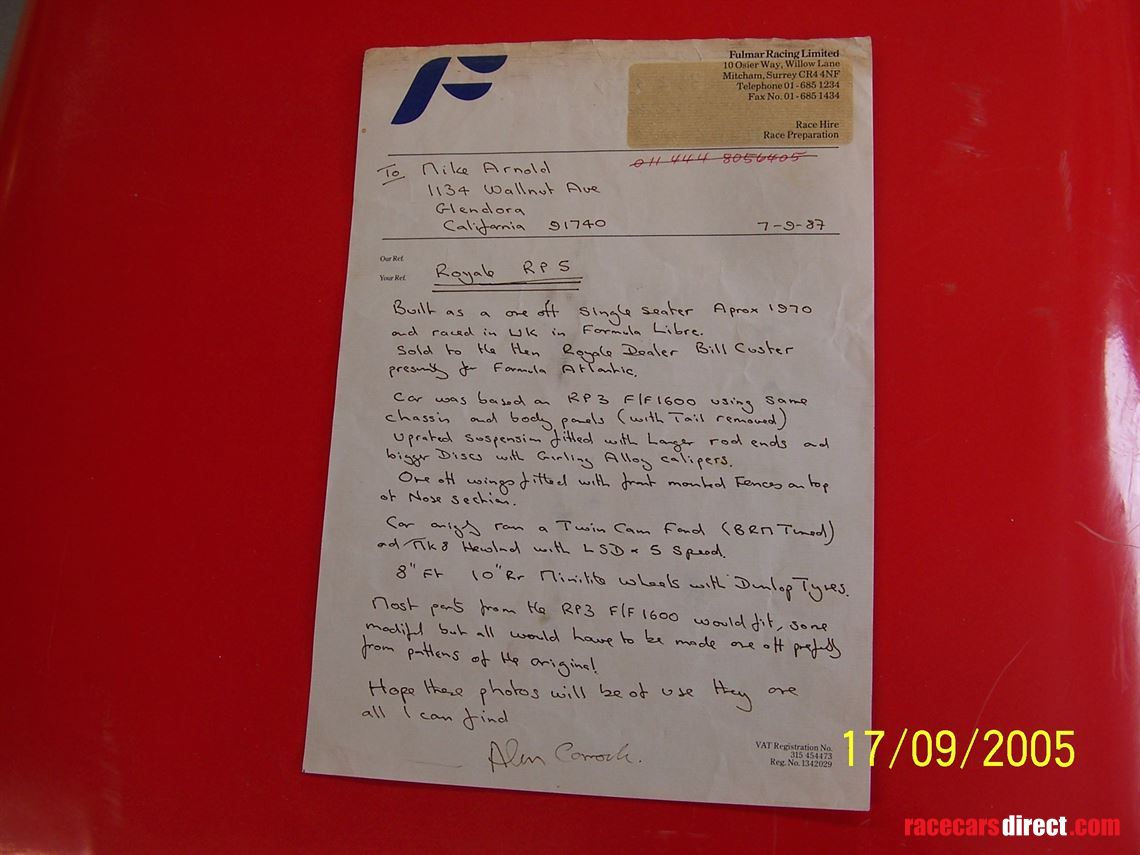 F
Fulmar Racing Limited
10 Osier Way, Willow Lane
Mitcham, Surrey CR4 4NF
Telephone 01 - 685 1234
Fax No. 01 - 685 1434
Race Hire
Race Preparation
011 444 8056405
To Mike Arnold
1134 Wallnut Ave
Glendora
California 91740
7-9-87
Our Ref.
Your Ref.
Royale RP5
Built as a one off Single seater Aprox 1970
and raced in UK in Formula Libre.
Sold to the then Royale Dealer Bill Custer
for Formula Atlantic.
Car was based on RP3 F/F1600 using same
chassis and body panels (with Tail removed)
uprated suspension fitted with Larger rod ends and
bigger Discs with Girling Alloy calipers.
One off wings fitted with front mounted Fences on top
of Nose section.
Car ran a Twin Cam Ford (BRM Tuned)
Mk8 Hewland with LSD x 5 Speed.
8" Ft 10" Rr Minilite wheels with Dunlop Tyres.
Most parts from the RP3 F/F 1600 would fit, some
but all would have to be made one off
from of the original
Hope these photos will be of use they are
all I can find
Alan
VAT Registration No.
315 454473
Reg. No. 1342029
17/09/2005
racecarsdirect.com